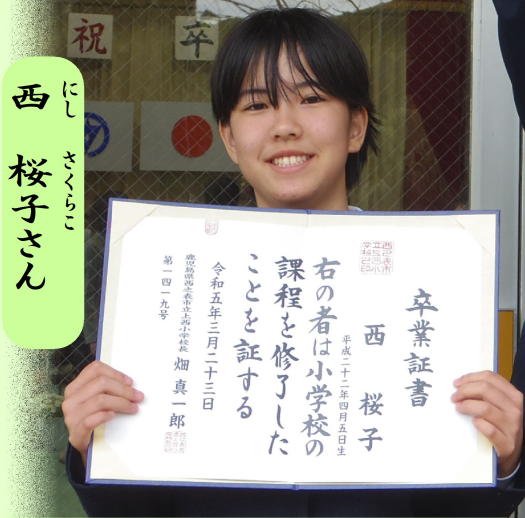 祝
卒
にし さくらこ
西 桜子さん
卒業証書
西 桜子
平成二十二年四月五日生
右の者は小学校の
課程を修了した
ことを証する
令和五年三月二十三日
鹿児島県西之表市立上西小学校長 畑 真一郎
第一四一九号